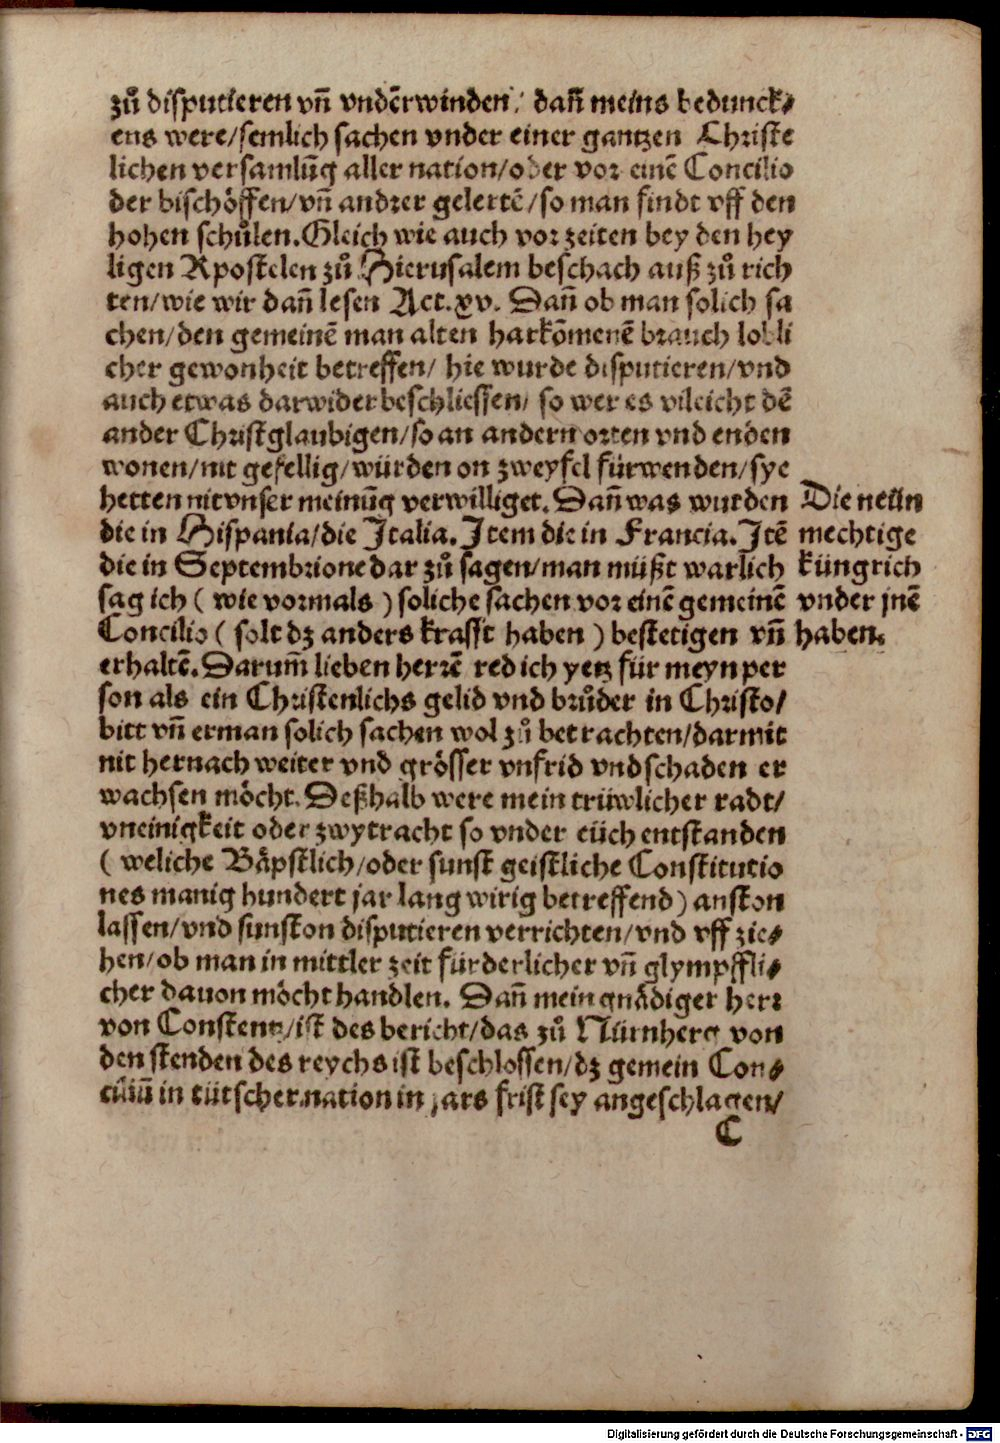 zuͦ disputieren vñ vndẽrwinden / dañ meins beduncks⸗
ens were/semlich sachen vnder einer gantzen Christe
lichen versamlũg aller nation/oder vor einẽ Concilio
der bischöffen/vñ andrer gelertẽ/so man findt vff den
hohen schuͦlen.Gleich wie auch vor zeiten bey den hey
ligen Apostelen zuͦ Hierusalem beschach auß zuͦ rich
ten/wie wir dañ lesen Act.xv. Dañ ob man solich sa
chen/den gemeinẽ man alten harkõmenẽ brauch lobli
cher gewonheit betreffen/ hie wurde disputieren/vnd
auch etwas darwider beschliessen/ so wer es vileicht dẽ
ander Christglaubigen/so an andern orten vnd enden
wonen/nit gefellig/würden on zweyfel fürwenden/sye
hetten nit vnser meinũg verwilliget. Dañ was wurden
die in Hispania/die Italia. Item die in Francia. Itẽ
die in Septembrione dar zuͦ sagen/man müßt warlich
sag ich ( wie vormals ) soliche sachen vor einẽ gemeinẽ
Concilio ( solt dz anders krafft haben ) bestetigen vñ
erhaltẽ. Darum̃ lieben herrẽ red ich yetz für meyn per
son als ein Christenlichs gelid vnd bruͦder in Christo/
bitt vñ erman solich sachen wol zuͦ betrachten/darmit
nit hernach weiter vnd grösser vnfrid vnd schaden er
wachsen möcht. Deßhalb were mein trüwlicher radt/
vneinigkeit oder zwytracht so vnder eüch entstanden
( weliche Bäpstlich/oder sunst geistliche Constitutio
nes manig hundert jar lang wirig betreffend ) anston
lassen/vnd sunston disputieren verrichten/vnd vff zie⸗
hen/ob man in mittler zeit fürderlicher vñ glympffli⸗
cher dauon möcht handlen. Dañ mein gnädiger herr
von Constentz/ist des bericht/das zuͦ Nürnberg von
den stenden des reychs ist beschlossen/dz gemein Con⸗
ciliũ in tütscher nation in jars frist sey angeschlagen/
C
Die neün
mechtige
küngrich
vnder jnẽ
haben.
Digitalisierung gefördert durch die Deutsche Forschungsgemeinschaft - DFG